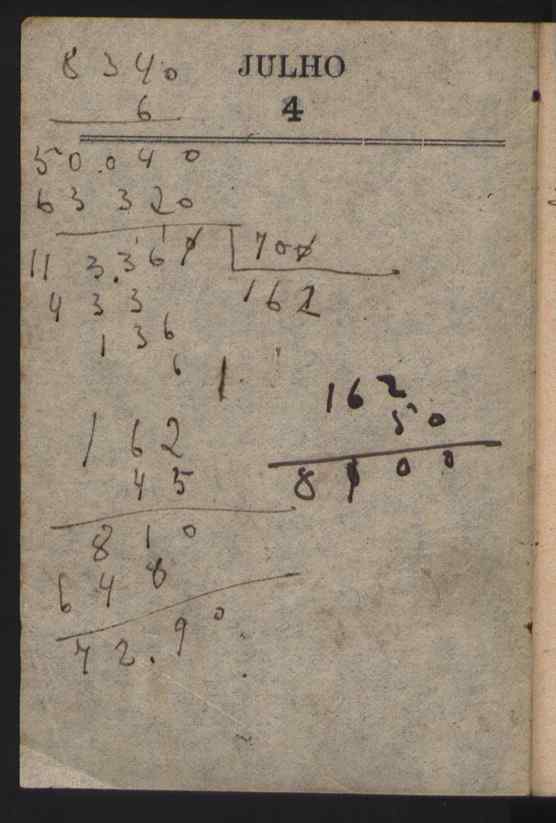 8340
JULHO
6
4
50.040
63 320
11 3.360 700
4 3 3 162
1 3 6
6
162
50
8100
162
45
810
648
72.90